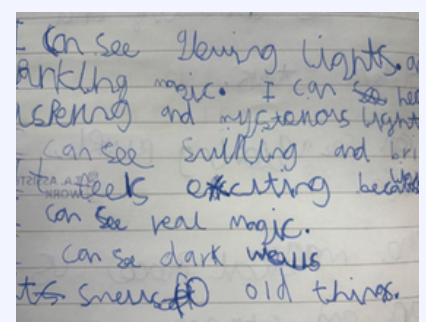 I Can see Glowing Lights. a
arkling magic. I can hea
ispering and mysterious light
I can see and bri
It feels exciting because
I can see real magic.
I can see dark
its smells old things.